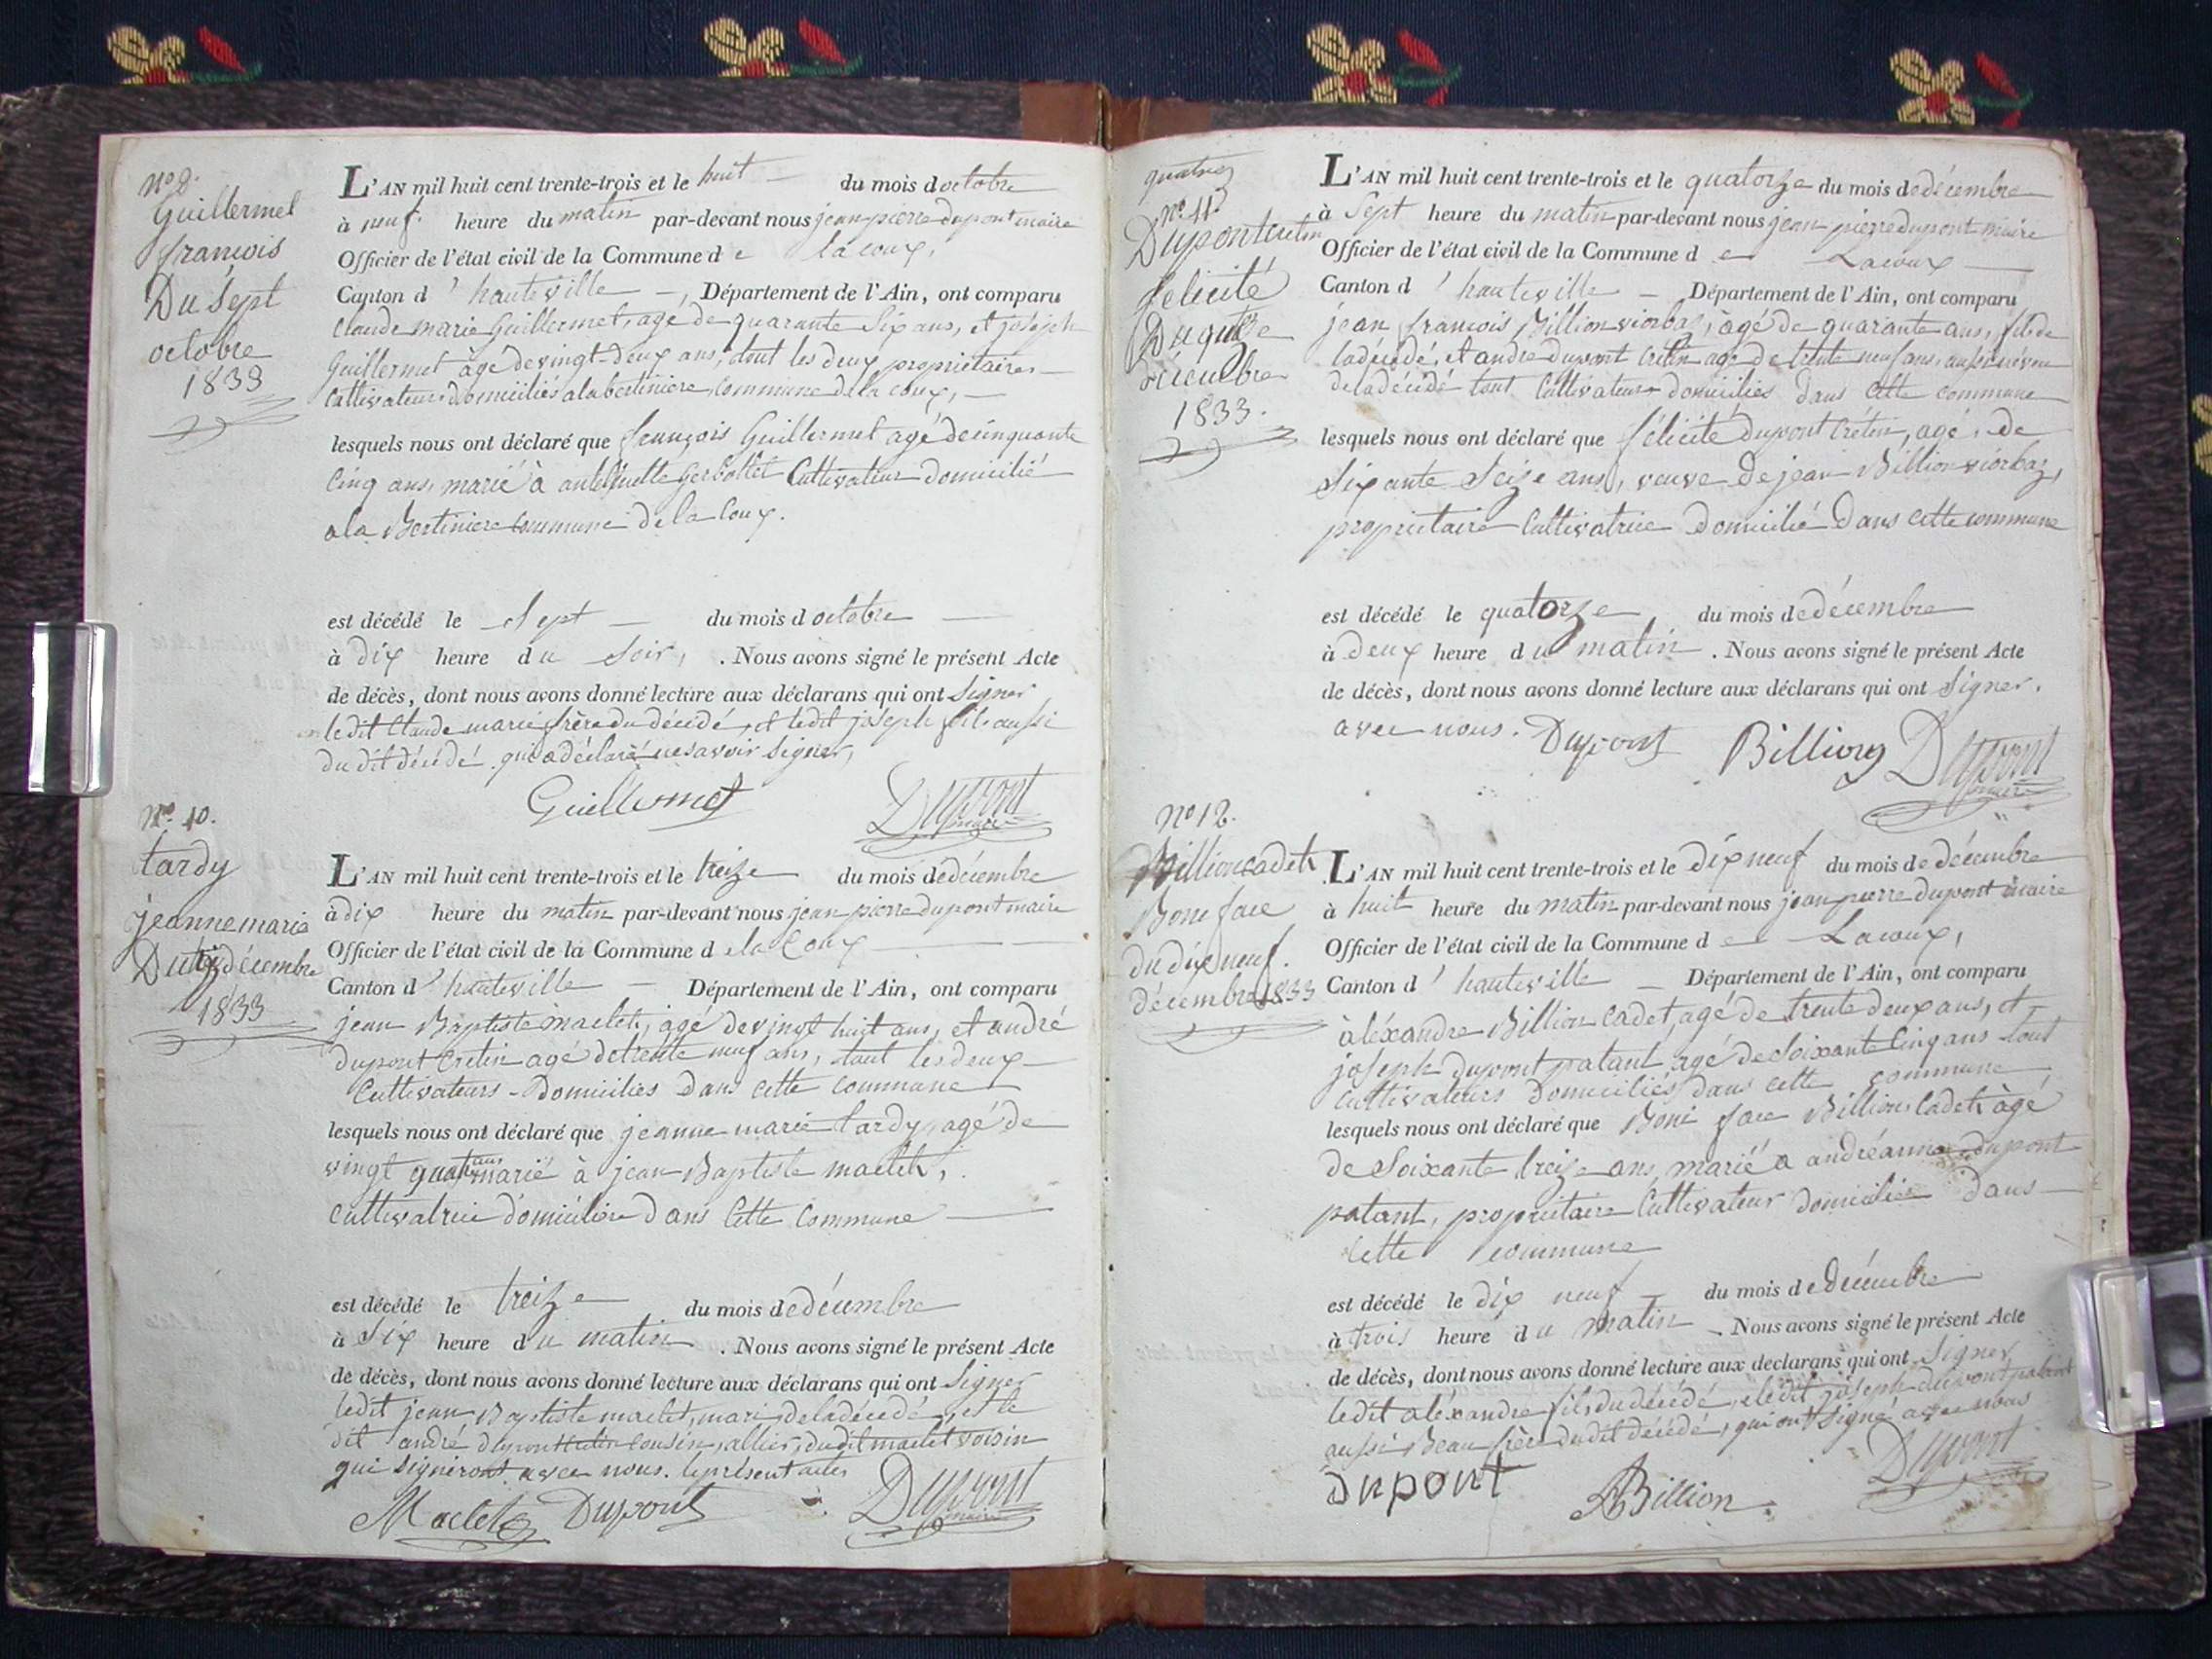 nº 9.
Guillermet
francois
Du Sept
octobre
1833
L'AN mil huit cent trente-trois et le huit du mois doctobre
à neuf heure du matin par-devant nous jean pierre dupont maire
Officier de l'état civil de la Commune de lacoux,
Canton d'hauteville, Département de l'Ain, ont comparu
Claude marie Guillermet, age de quarante Six ans, et joseph
Guillermet agé de vingt-deux ans, tout les deux propriétaires
Cultivateurs domiciliés a la bertiniere, commune de la coux,
lesquels nous ont déclaré que françois Guillermet agé de cinquante
Cinq ans, marié à Gerbollet Cultivateur domicilié
a la Bertiniere Commune de la Coux.
est décédé le Sept du mois d octobre
à Dix heure du Soir, . Nous avons signé le présent Acte
de décès, dont nous avons donné lecture aux déclarans qui ont Signer
ledit Claude marie frère du décédé, et ledit joseph fils aussi
du dit décédé qui a déclaré ne savoir Signer,
Guillermet Dupont maire
Nº. 10.
tardy
jeanne marie
Du décembre
1833
L'AN mil huit cent trente-trois et le treize du mois de décembre
à dix heure du matin par-devant nous jean pierre dupont maire
Officier de l'état civil de la Commune de la Coux
Canton d'hauteville Département de l'Ain, ont comparu
jean Baptiste maclet, agé de vingt huit ans, et andré
dupont Cretin agé de trente neuf ans, tout les deux
Cultivateurs Domiciliés Dans cette commune
lesquels nous ont déclaré que jeanne marie tardy, agé de
vingt quatre ans marié à jean Baptiste maclet,
Cultivatrice domiciliée Dans Cette Commune
est décédé le treize du mois de décembre
à Six heure du matin . Nous avons signé le présent Acte
de décès, dont nous avons donné lecture aux déclarans qui ont Signer
ledit jean Baptiste maclet, mari de la décédé, et le
dit andré dupont cretin Cousin, allier, du dit maclet voisin
qui signeront avec nous. le présent acte
Maclet Dupont Dupont maire
quatorze
nº. 11.
Dupont cretin
felicité
Du
décembre
1833.
L'AN mil huit cent trente-trois et le quatorze du mois de décembre
à Sept heure du matin par-devant nous jean pierre dupont maire
Officier de l'état civil de la Commune de Lacoux
Canton d'hauteville Département de l'Ain, ont comparu
jean francois Billion viorbaz, àgé de quarante ans, fils de
la décédé, et andre dupont Crétin agé de trente neuf ans, aussi neveu
de la décédé tout Cultivateurs domiciliés Dans cette commune
lesquels nous ont déclaré que félicité dupont Crétin, agé, de
Sixante Seize ans, veuve de jean Billion viorbaz,
propriétaire Cultivatrice Domicilié Dans cette commune
est décédé le quatorze du mois de décembre
à deux heure du matin . Nous avons signé le présent Acte
de décès, dont nous avons donné lecture aux déclarans qui ont Signer.
avec nous. Dupont Billion Dupont maire
nº 12.
Billion cadet
Boniface
du dix neuf
décembre 1833
L'AN mil huit cent trente-trois et le Dix neuf du mois de décembre
à huit heure du matin par-devant nous jean pierre dupont maire
Officier de l'état civil de la Commune de Lacoux,
Canton d'hauteville Département de l'Ain, ont comparu
àléxandre Billion Cadet, agé de trente deux ans, et
joseph dupont patant agé de Soixante Cinq ans tout
cultivateurs Domiciliés dans cette commune
lesquels nous ont déclaré que Boni face Billion Cadet àgé
de Soixante treize ans, marié a andréanne dupont
patant, propriétaire Cultivateur Domicilié Dans
Cette commune
est décédé le dix neuf du mois de Décembre
à trois heure du matin . Nous avons signé le présent Acte
de décès, dont nous avons donné lecture aux declarans qui ont Signer
ledit aléxandre fils du décédé, et le dit joseph dupont patant
aussi Beau frère du dit décédé, qui ont signé avec nous
Dupont ABillion Dupont